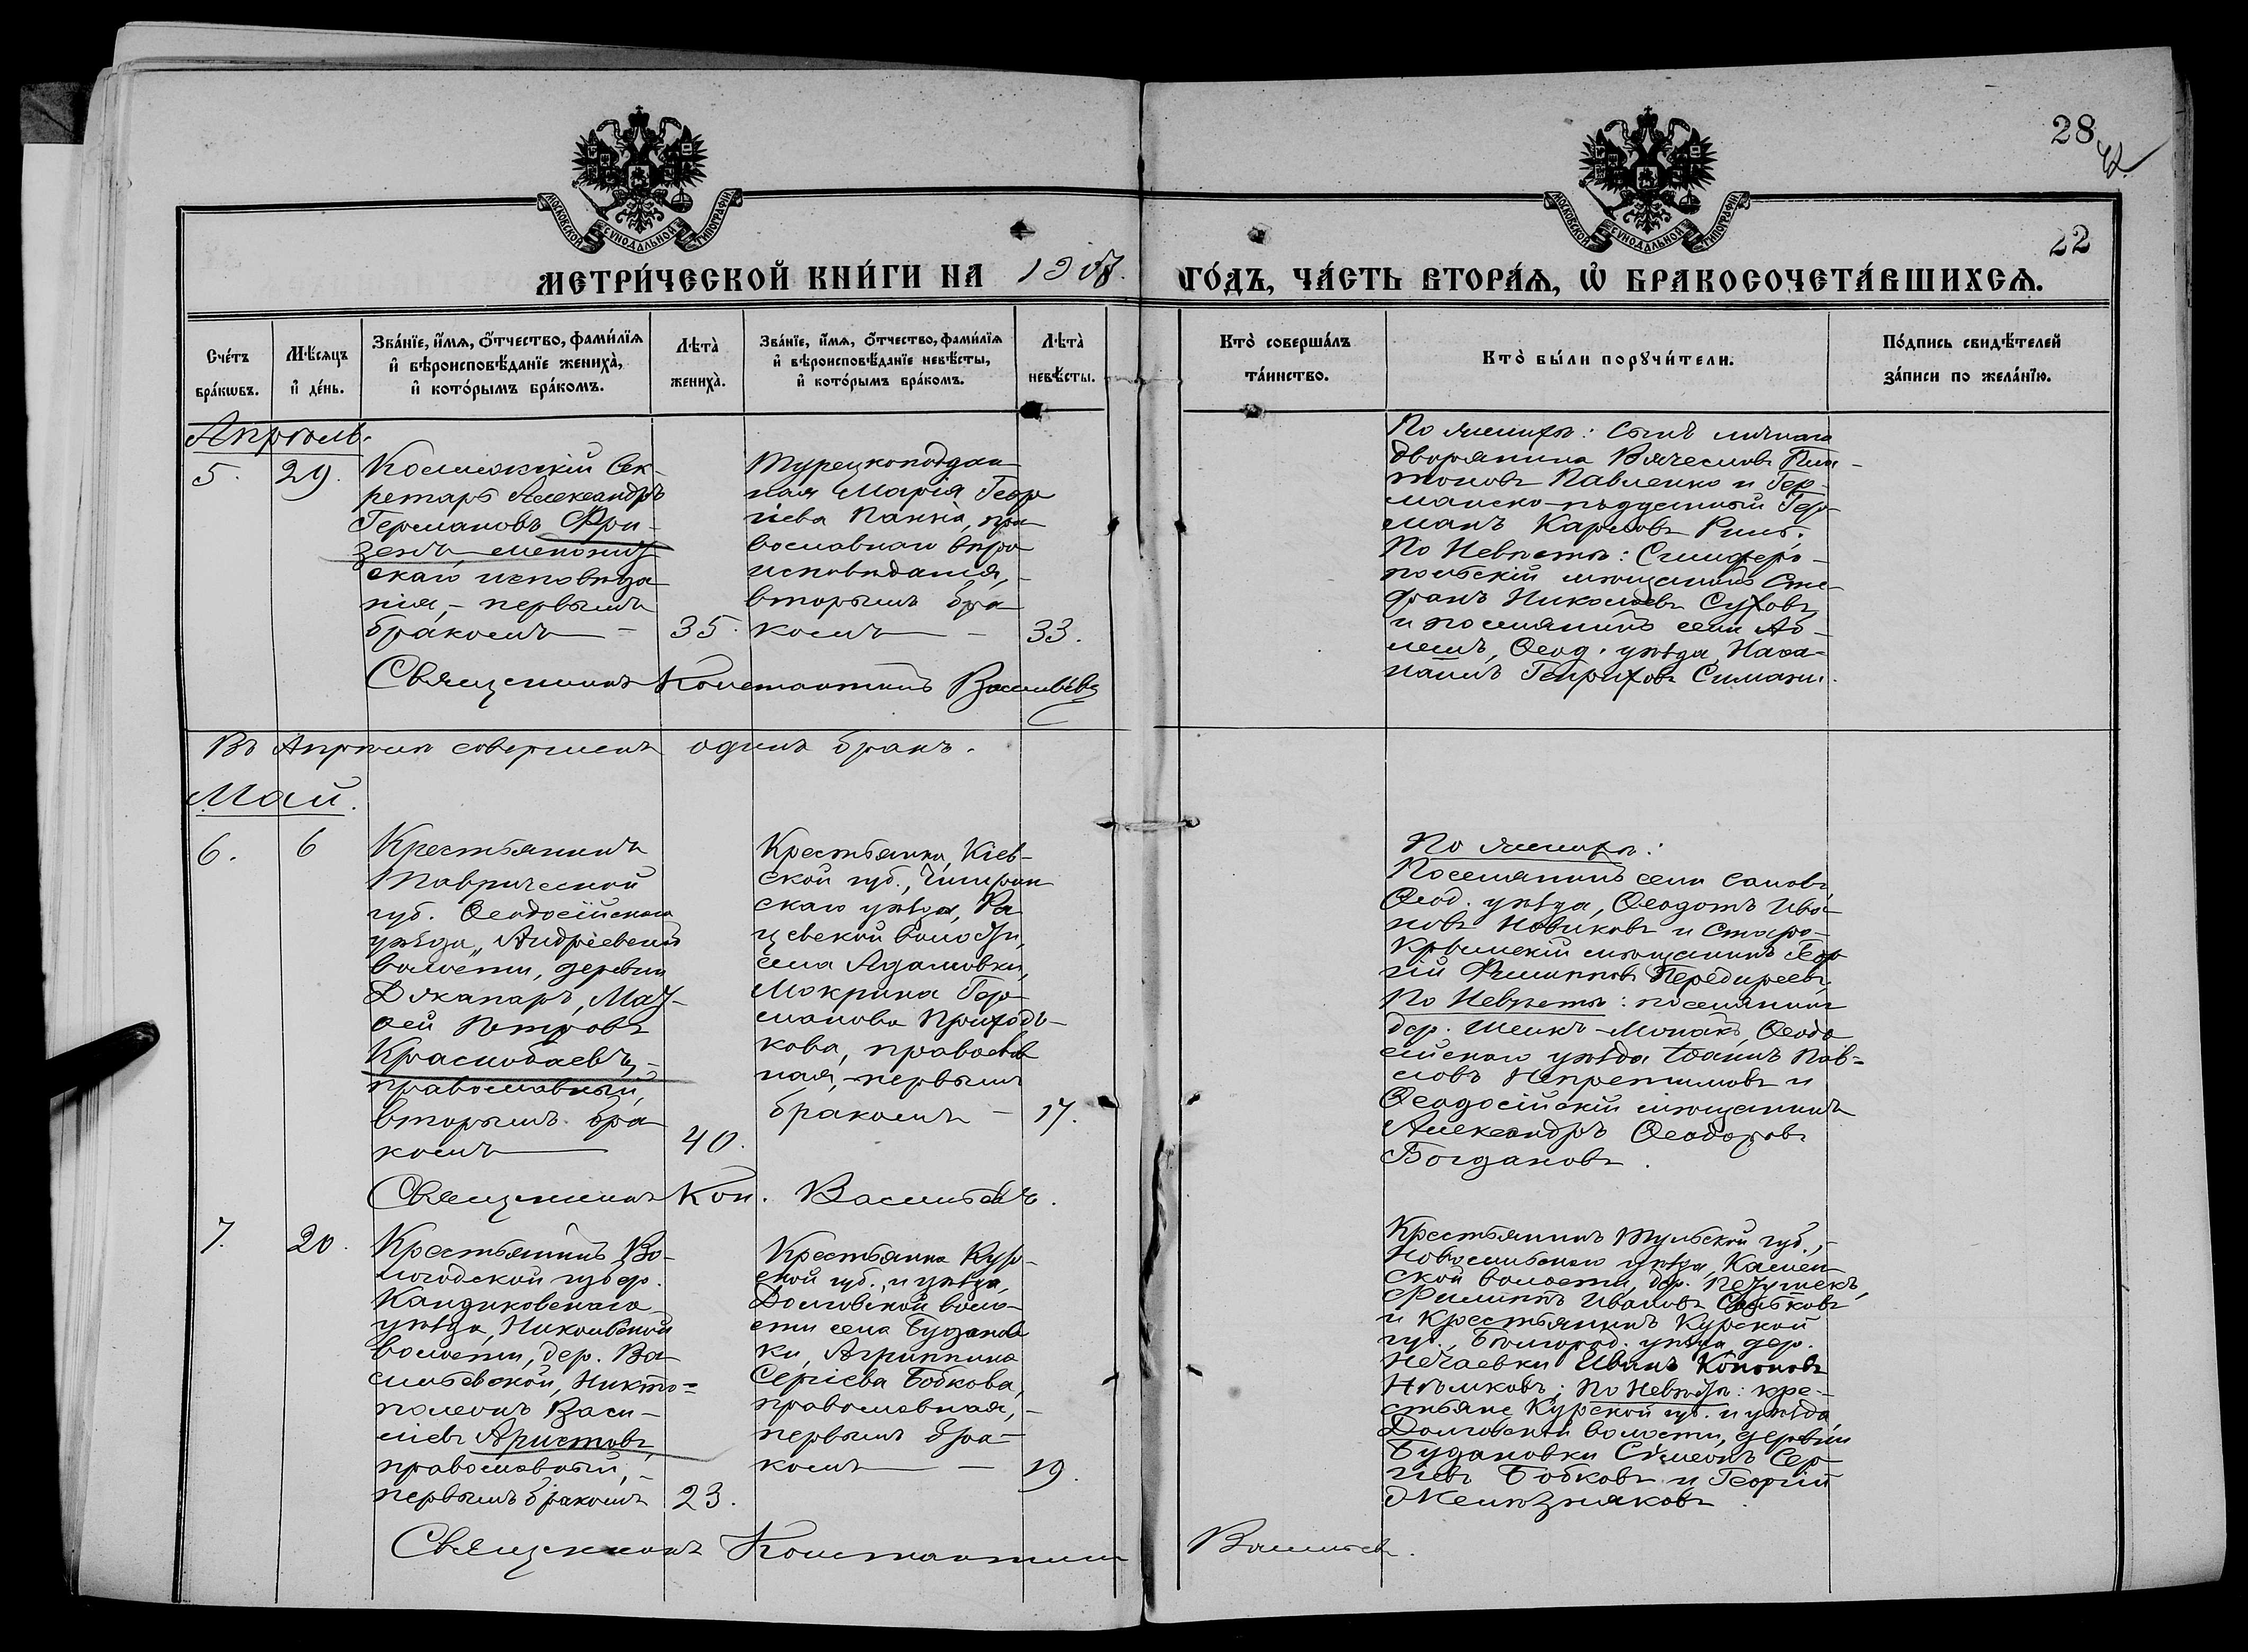 28
42
22
МОСКОВСКОЙ СѴНОДАЛЬНОЙ ТИПОГРАФІИ
МОСКОВСКОЙ СѴНОДАЛЬНОЙ ТИПОГРАФІИ
МЕТРИ́ЧЕСКОЙ КНИ́ГИ НА 1908. ГО́ДЪ, ЧА́СТЬ ВТОРА́Ѧ, Ѽ БРАКОСОЧЕТА́ВШИХСѦ.
Сче́тъ бра́кѡвъ.
Мѣ́сѧцъ и҆ де́нь.
Зва́нїе, и҆́мѧ, ѻ҆́тчество, фами́лїѧ
и҆ вѣроисповѣ́данїе жениха̀,
и҆ кото́рымъ бра́комъ.
Лѣта̀ жениха̀.
Зва́нїе, и҆́мѧ, ѻ҆́тчество, фами́лїѧ
и҆ вѣроисповѣ́данїе невѣ́сты,
и҆ кото́рымъ бра́комъ.
Лѣта̀ невѣ́сты.
Кто̀ соверша́лъ та́инство.
Кто̀ бы́ли порꙋчи́тели.
По́дпись свидѣ́телей
за́писи по жела́нїю.
Апрѣль.
5.
29.
Коллежскій Сек-
ретарь Александръ
Германовъ Фри-
зенъ менонит
скаго исповѣда
нія, - первымъ
бракомъ -
35.
Турецкоподдан
ная Марія Геор
гіева Панкіа, пра
вославнаго вѣро
исповѣданія, -
вторымъ бра
комъ -
33.
Священникъ Константинъ Васильевъ
По женихѣ: Сынъ личнаго
дворянина Вячеславъ Пла-
тоновъ Павленко и Гер-
манско-подданный Гер-
манъ Карловъ Риль.
По Невѣстѣ: Симферо-
польскій мѣщанинъ Сте-
фанъ Николаевъ Суховъ
и поселянинъ села Аб-
лешъ, Ѳеод. уѣзда, Наѳа-
наилъ Генриховъ
Въ Апрѣлѣ совершенъ одинъ бракъ.
Май.
6.
6
Крестьянинъ
Таврической
губ. Ѳеодосійскаго
уѣзда, Андреевской
волости, деревни
Джапаръ, Мат-
ѳей Петровъ
Краснобаевъ, -
православный,
вторымъ бра
комъ
40.
Крестьянка, Кіев-
ской губ., Чигирин
скаго уѣзда, Ра
цевской волости,
села Адамовки,
Макрина Гер-
манова Приходь-
кова, православ
ная, - первымъ
бракомъ -
17.
Священникъ Кон. Васильевъ.
По женихѣ:
Поселянинъ села Салов,
Ѳеод. уѣзда, Ѳеодотъ Ива-
новъ Новиковъ и Старо-
Крымскій мѣщанинъ Геор
гій Филипповъ Передиреевъ.
По Невѣстѣ: поселянинъ
дер. Шейкъ-Монакъ, Ѳеодо
сійскаго уѣзда Іоаннъ Пав-
ловъ Непретимовъ и
Ѳеодосійскій мѣщанинъ
Александръ Ѳеодоровъ
Богдановъ.
7.
20.
Крестьянинъ Во-
логодской губер.
Кандиковскаго
уѣзда, Никольской
волости, дер. Ва
сильевской, Никто-
полеонъ Васи-
ліевъ Аристовъ,
православный, -
первымъ бракомъ
23.
Крестьянка Кур-
ской губ., и уѣзда,
Долговской воло-
сти села Буданов
ки, Агриппина
Сергіева Бобкова,
православная, -
первымъ бра-
комъ -
19.
Крестьянинъ Тульской губ.,
Новосильскаго уѣзда, Камен
ской волости, дер. Петушекъ,
Филиппъ Ивановъ
и Крестьянинъ Курской
губ., Бѣлгород. уѣзда, дер.
Нечаевки Иванъ Кононовъ
Нѣмковъ; По Невѣстѣ: кре-
стьяне Курской губ. и уѣзда,
Долговской волости, деревни
Будановки Сѵмеонъ Сер-
гіевъ Бобковъ и Георгій
Желѣзняковъ.
Священникъ Константинъ Васильевъ.